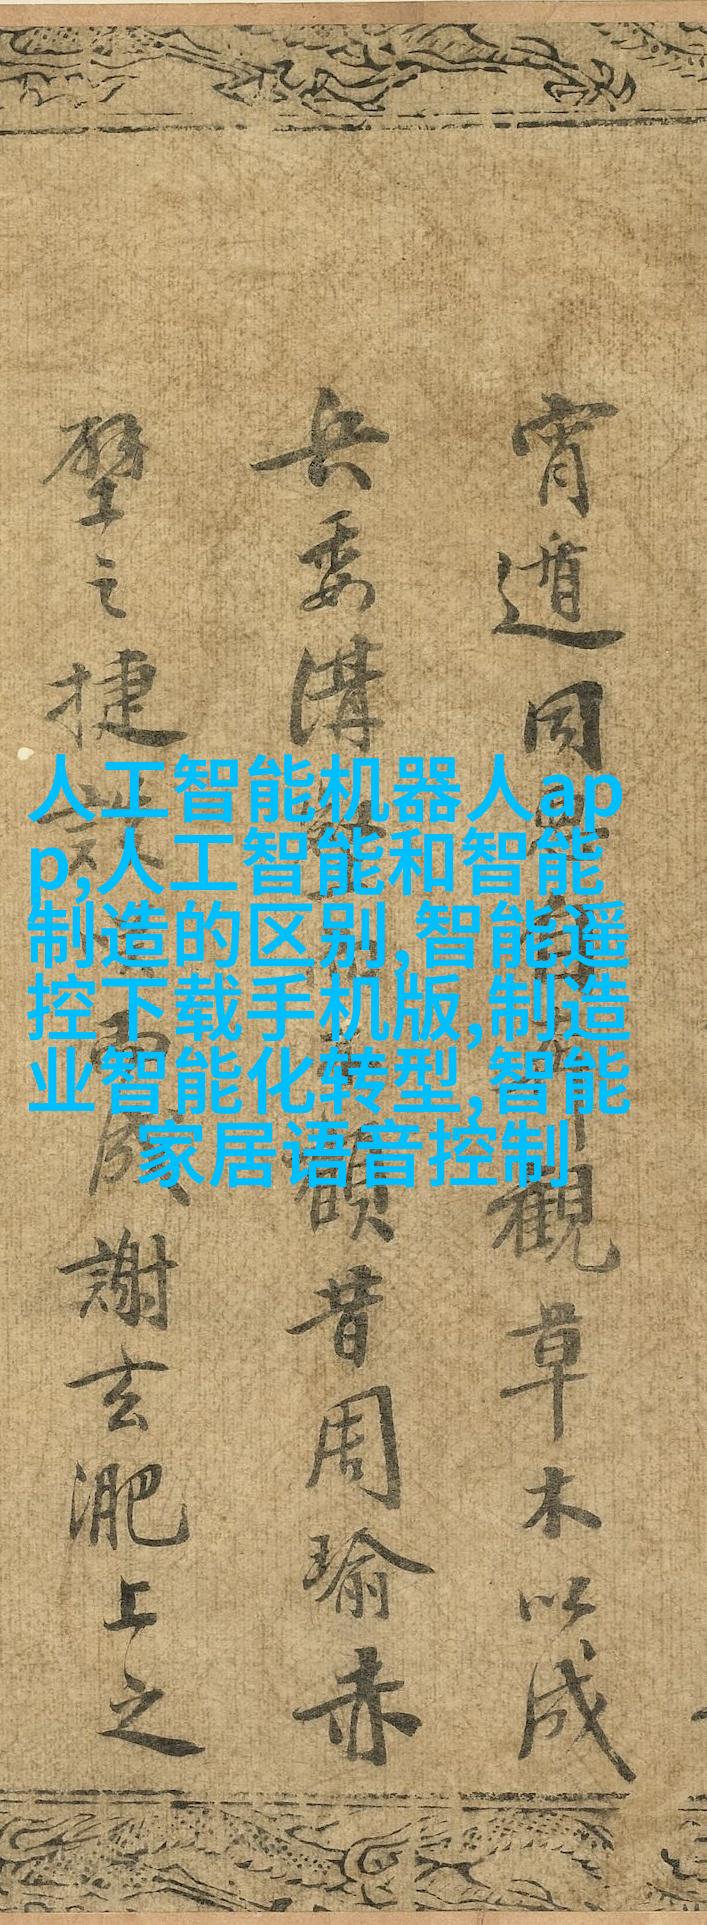 宵遁同觀草木以成
兵委溝昔周瑜赤
壁之捷謝玄淝上之
人工智能机器人ap
p,人工智能和智能
制造的区别,智能遥
控下载手机版,制造
业智能化转型,智能
家居语音控制